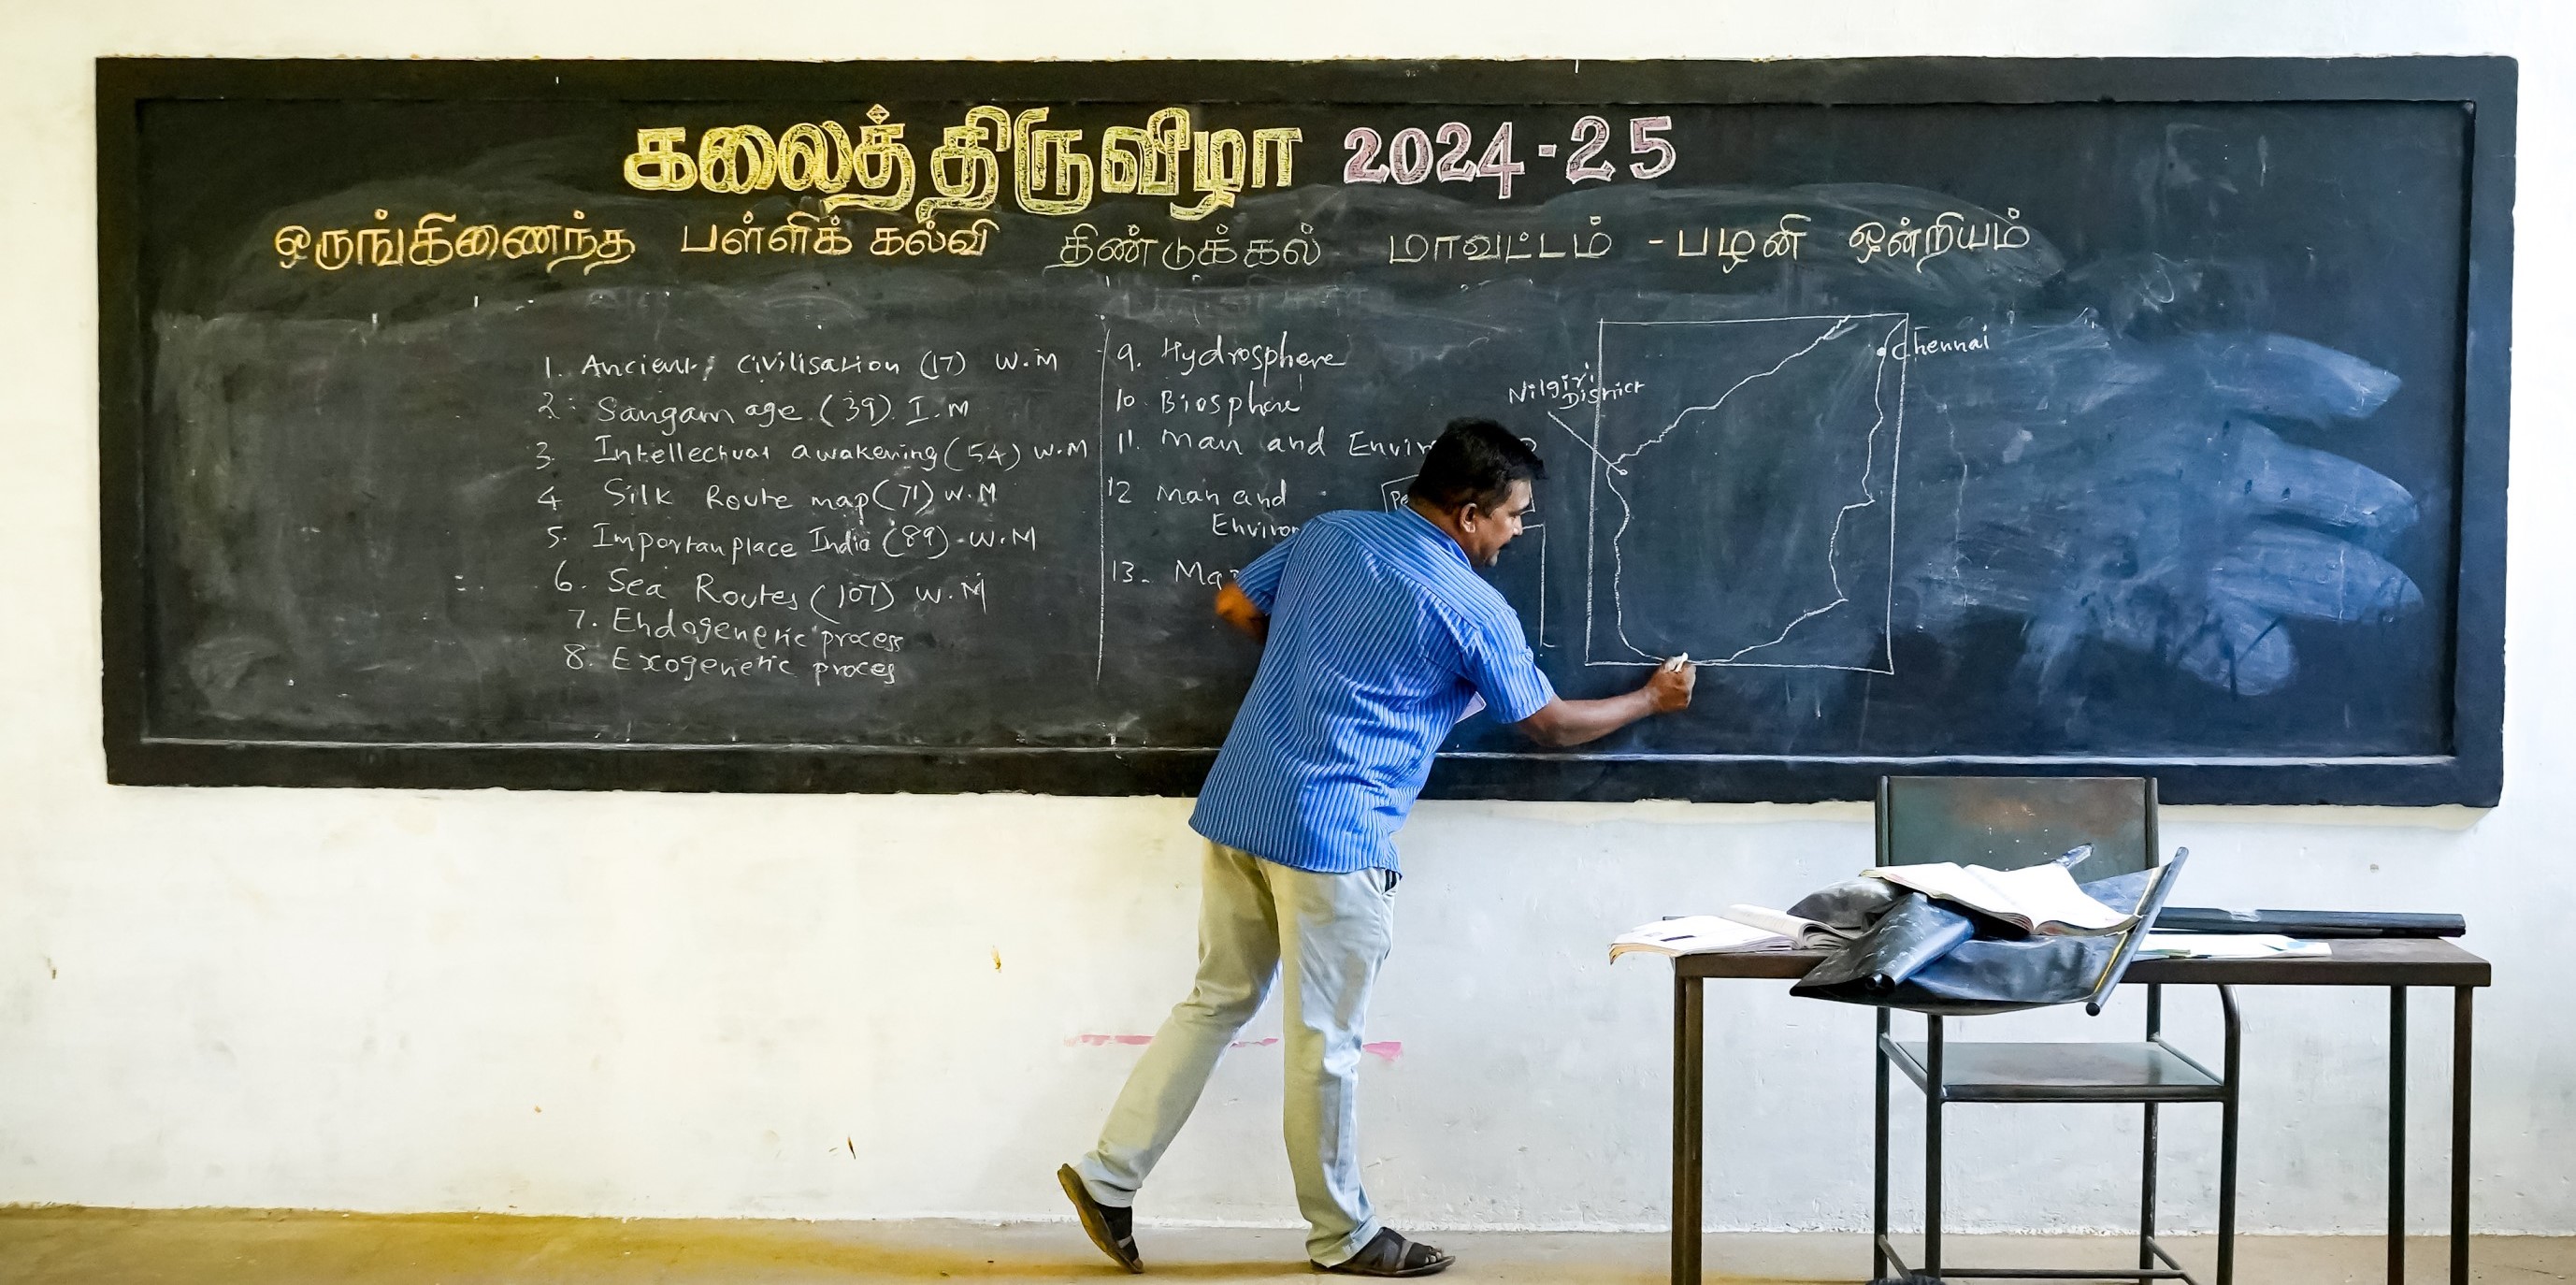 கலைத் திருவிழா 2024-25
ஒருங்கிணைந்த பள்ளிக் கல்வி திண்டுக்கல் மாவட்டம் - பழனி ஒன்றியம்
1. Ancient Civilisation (17) W.M
2. Sangam age (39) I.M
3. Intellectual awakening (54) W.M
4 Silk Route map (71) W.M
5. Importan place India (89) - W.M
6. Sea Routes (107) W.M
7. Endogenetic process
8. Exogenetic proces
9. Hydrosphere
10 Biosphere
11. Man and
12 Man and
13.
Nilgiri
District
Chennai